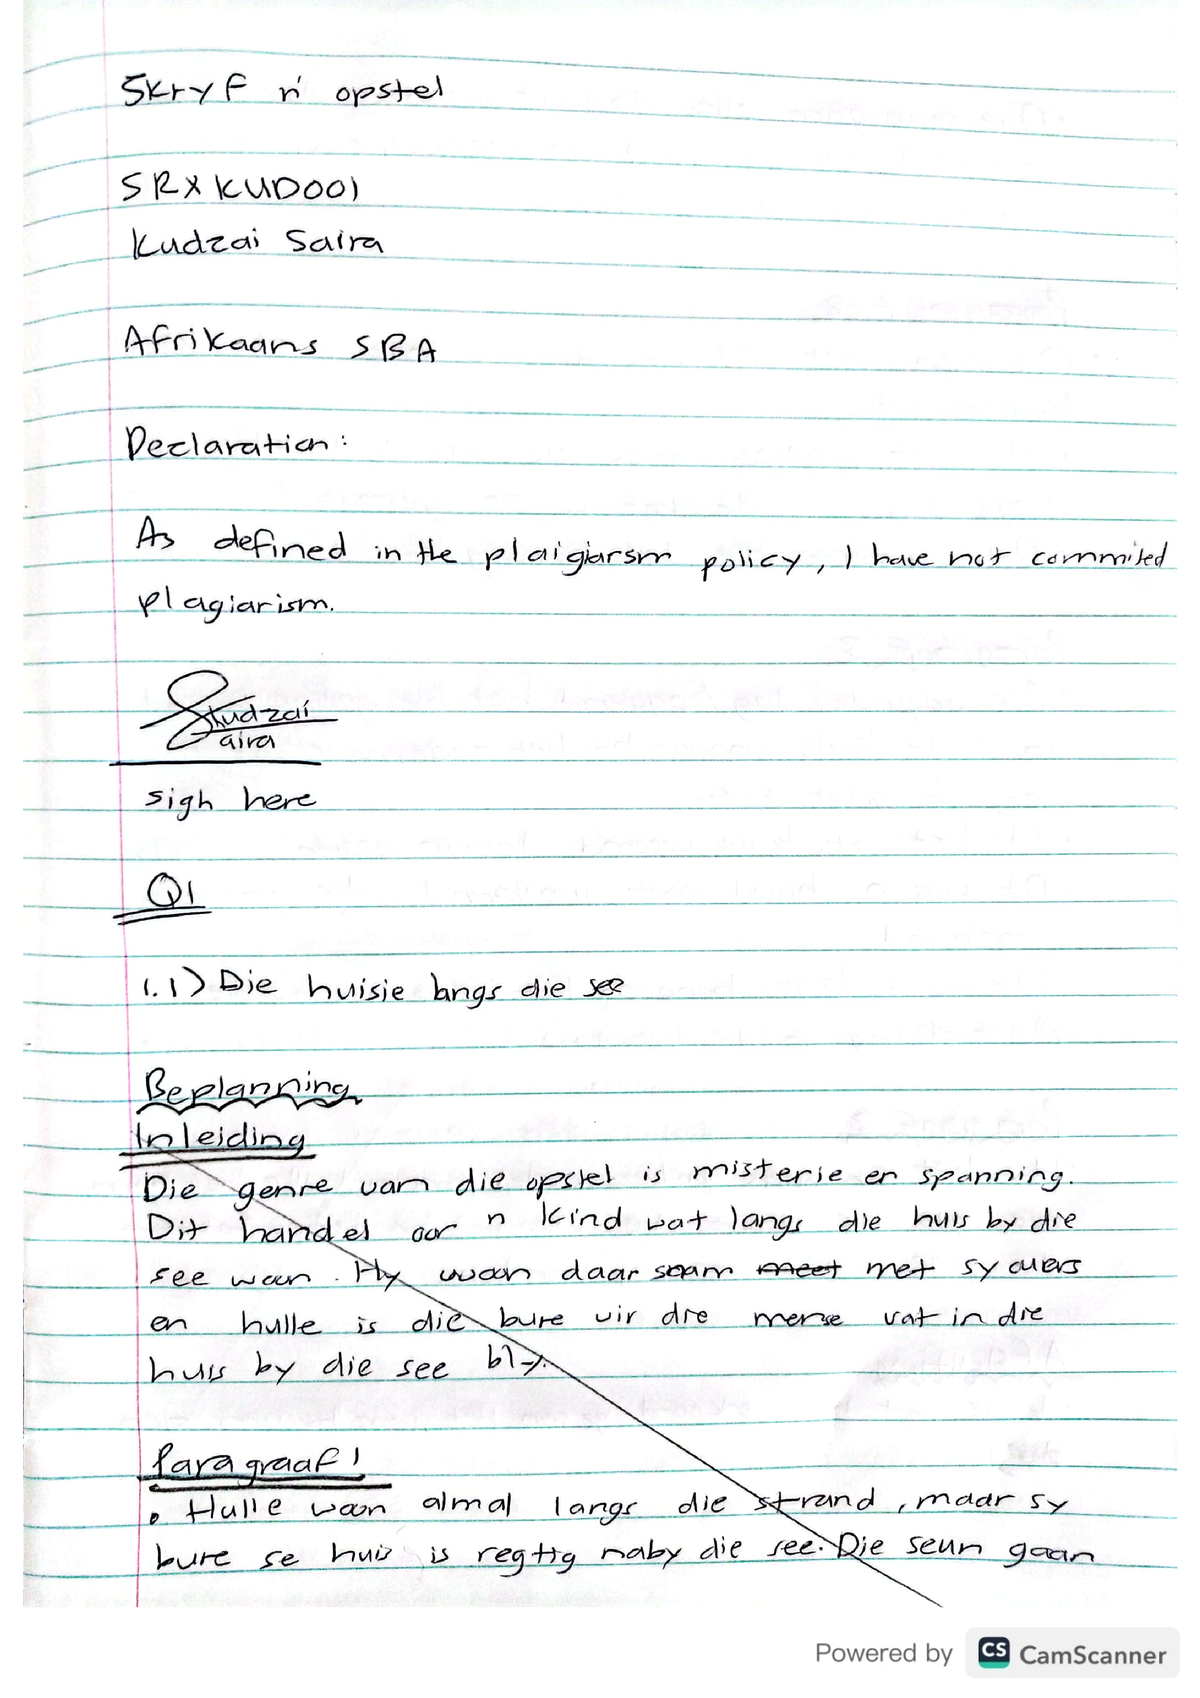 Skryf n' opstel
SRXKUD001
Kudzai Saira
Afrikaans SBA
Declaration:
As defined in the plaigiarsm policy, I have not commited
plagiarism.
Kudzai
Saira
sigh here
Q1
1.1) Die huisie langs die see
Beplanning
Inleiding
Die genre van die opstel is misterie en spanning.
Dit handel oor n kind wat langs die huis by die
see woon. Hy woon daar saam meet met sy ouers
en hulle is die bure vir die mense wat in die
huis by die see bly.
Paragraaf 1
• Hulle woon almal langs die strand, maar sy
bure se huis is regtig naby die see. Die seun gaan
Powered by CS CamScanner